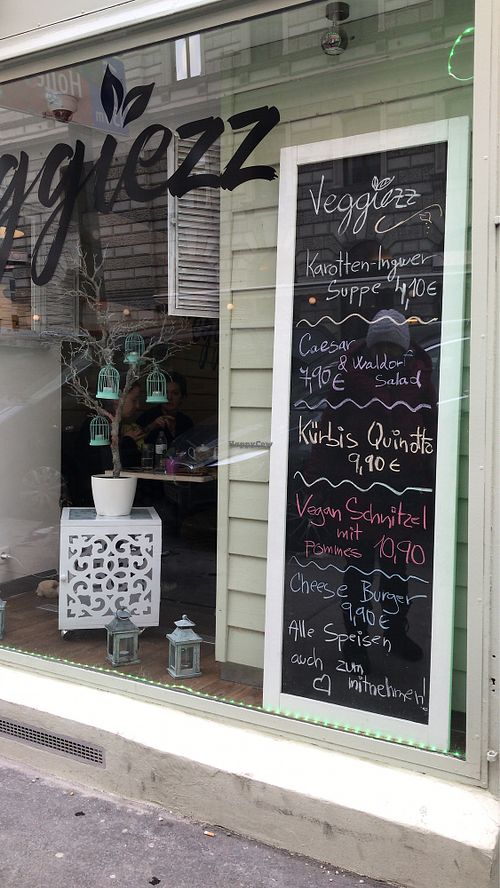 ggiezz
Veggiezz
Karotten-Ingwer
Suppe 4,10€
Caesar
& Waldorf
7,90€ Salad
Kürbis Quinotto
9,90€
Vegan Schnitzel
mit
Pommes 10,90
Cheese Burger
9,90€
Alle Speisen
auch zum
mitnehmen!
HappyCow